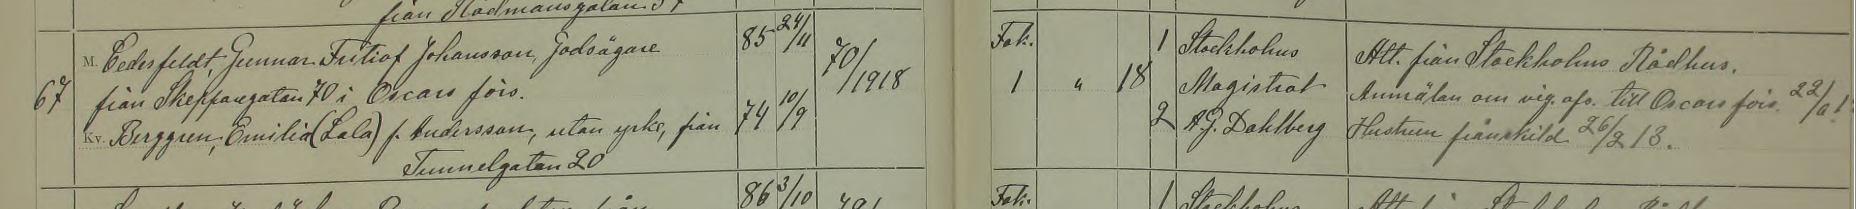 från Rådmansgatan 57
M. Cederfeldt, Gunnar Fritiof Johansson, Godsägare 85 24/11 70/1918 Fak. 1 Stockholms Att. från Stockholms Rådhus.
67 från Skeppargatan 70 i Oscars förs. 1 " 18 Magistrat Anmälan om vig. afs. till Oscars förs. 22/
Kv. Berggren, Emilia (Lala) f. Andersson, utan yrke, från 74 10/9 2 A.G. Dahlberg Hustrun frånskild 26/2 13.
Tunnelgatan 20
86 3/10 Fak. 1 Stockholms